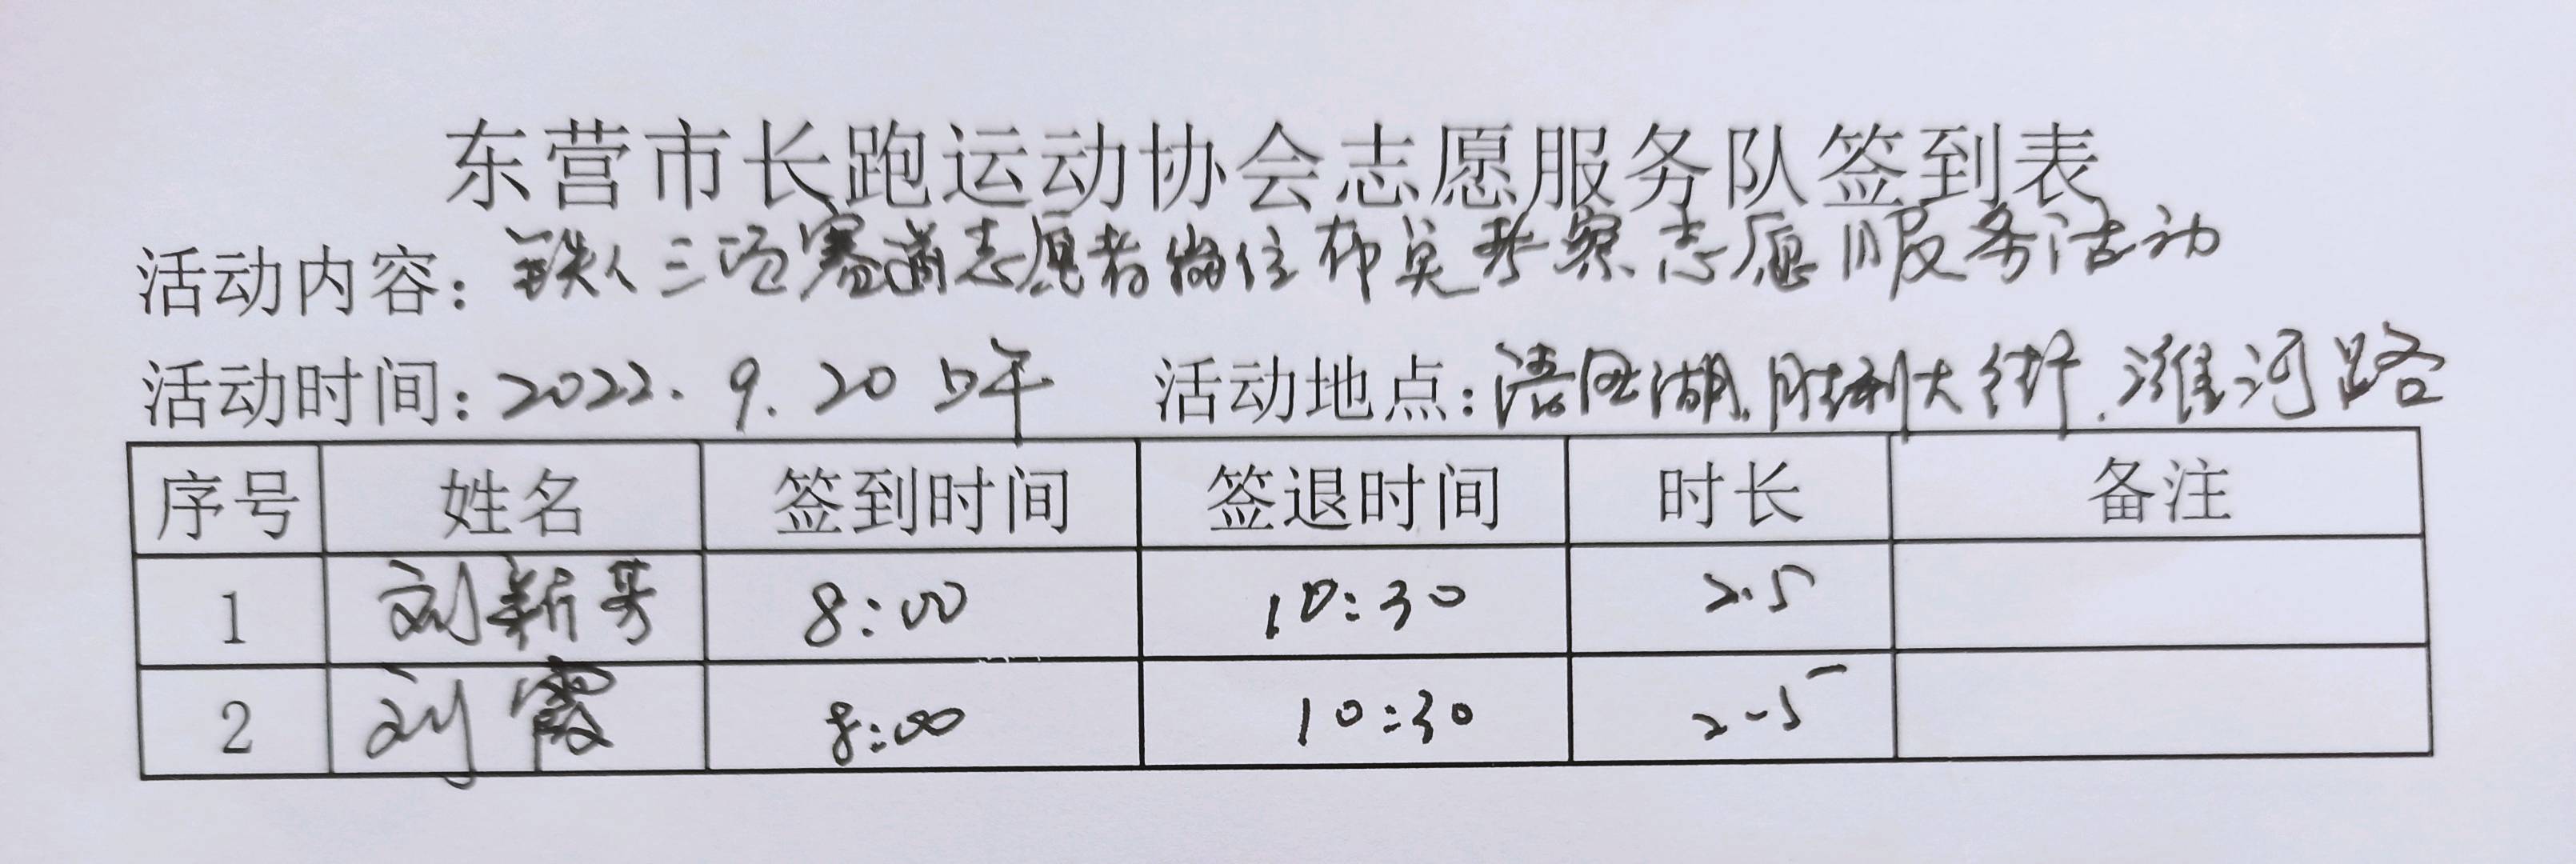 东营市长跑运动协会志愿服务队签到表
活动内容: 铁人三项赛前志愿者岗位布点考察志愿服务活动
活动时间: 2022.9.20上午 活动地点: 清风湖.胜利大街.潍河路
序号 姓名 签到时间 签退时间 时长 备注
1 刘新芳 8:00 10:30 2.5
2 刘霞 8:00 10:30 2.5